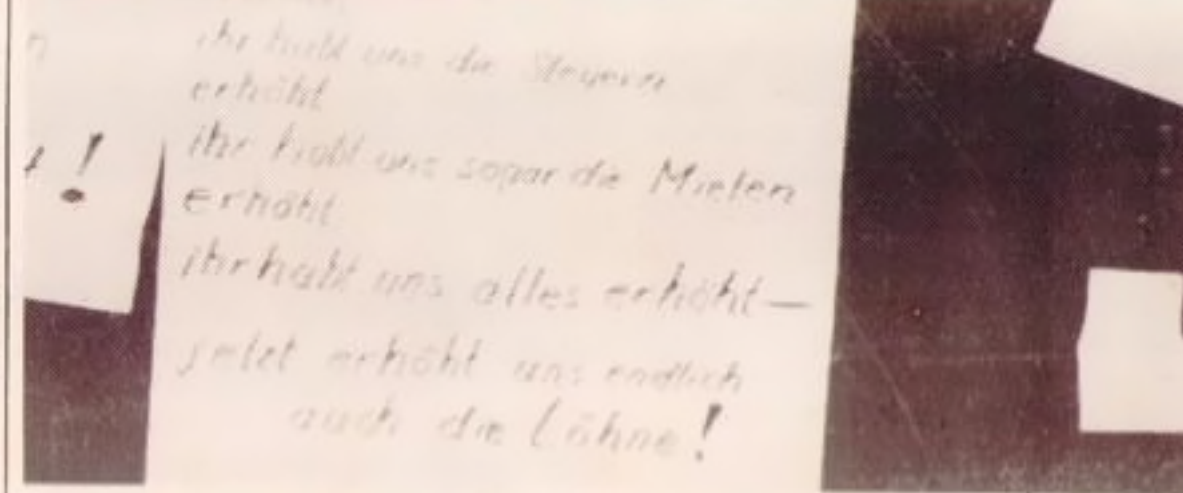 ihr habt uns die Steuern
erhöht
ihr habt uns sogar die Mieten
erhöht
ihr habt uns alles erhöht—
jetzt erhöht uns endlich
auch die Löhne!
!